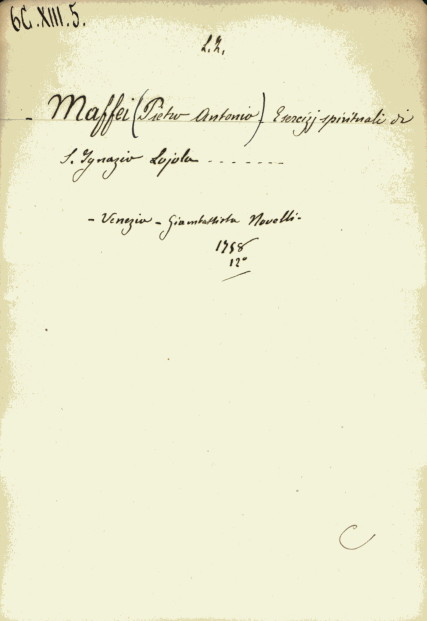 6C.XIII.5.
L.Z.
- Maffei (Pietro Antonio) - Esercizj spirituali di
S. Ignazio Lojola - - - - - - -
- Venezia - Giambattista Novelli -
1758
12°
C